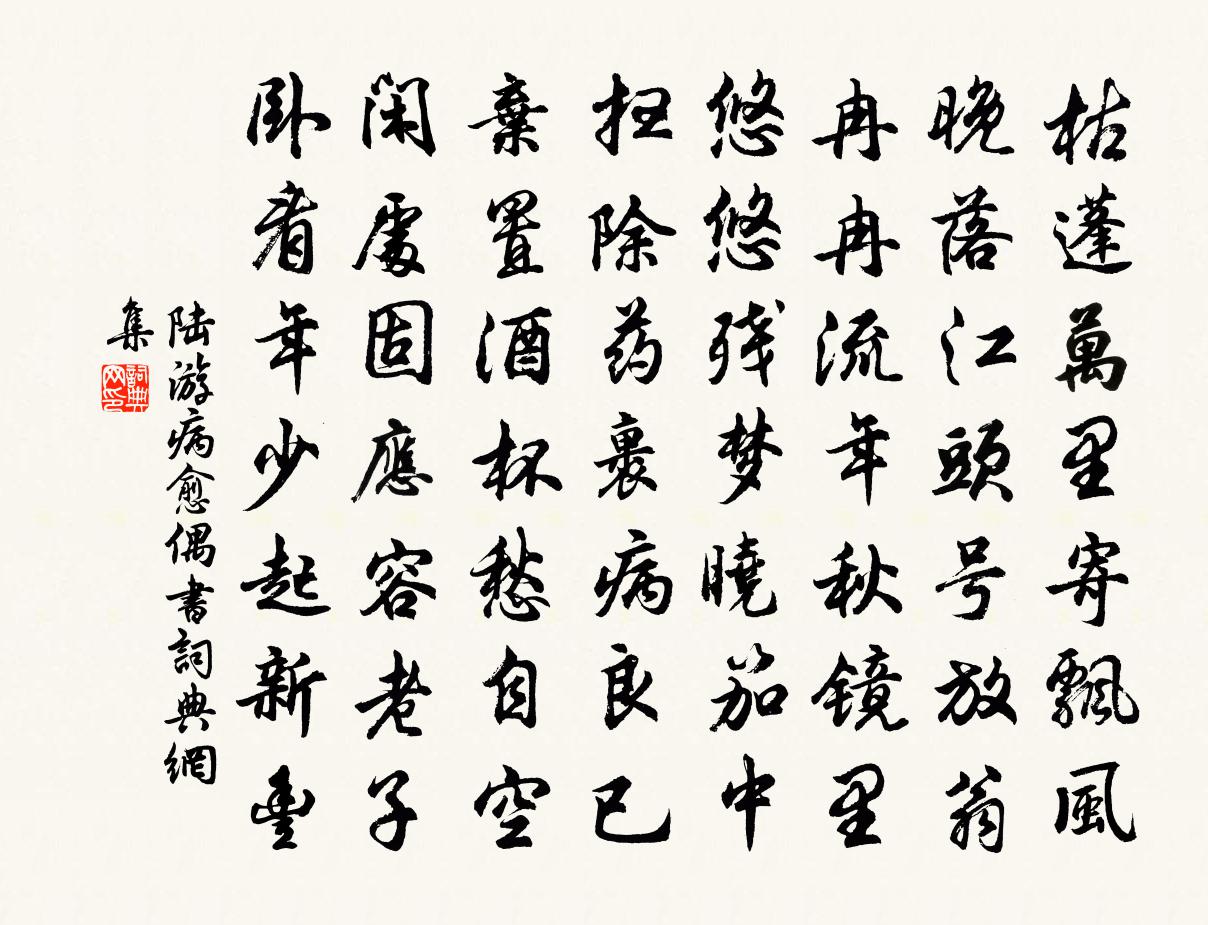 枯蓬萬里寄飄風
晚落江頭号放翁
冉冉流年秋镜里
悠悠残梦曉笳中
扫除药裹病良已
棄置酒杯愁自空
闲處固應容老子
卧看年少起新豊
陆游病愈偶書詞典網
集
詞典
网印